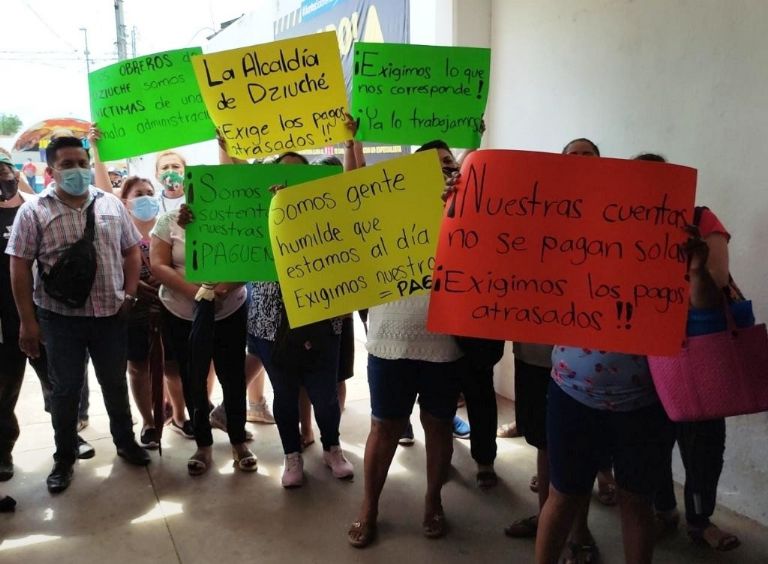 OBREROS D
DZIUCHE SOMOS
VÍCTIMAS DE UNA
mala administraci
La Alcaldía
de Dziuché
Exige los pagos
atrasados !!
¡Exigimos lo que
nos corresponde!
¡Ya lo trabajamos
¡Somos
sustent
nuestras
¡PAGUEN
Somos gente
humilde que
estamos al día
Exigimos nuestro
= PAG
¡Nuestras cuentas
no se pagan solas!
¡Exigimos los pagos
atrasados !!